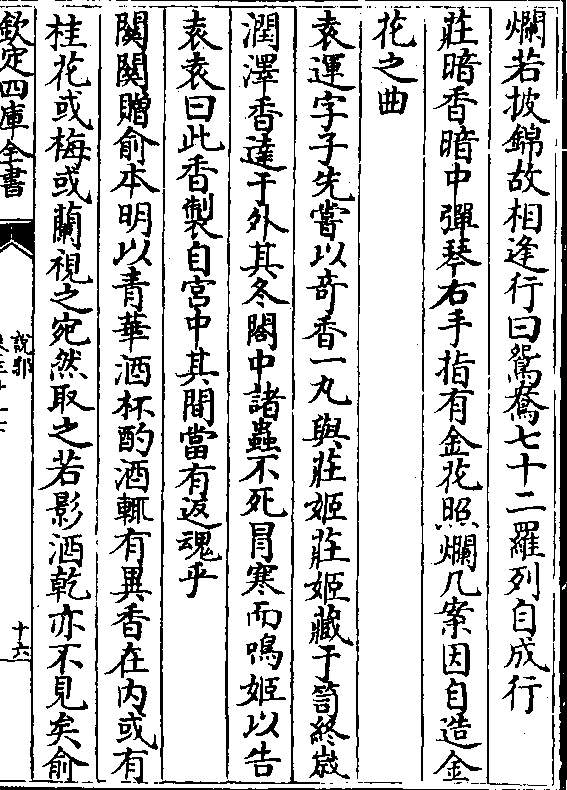 爛若披錦故相逢行曰鴛鴦七十二羅列自成行
莊暗香暗中彈琴右手指有金花照爛几案因自造金
花之曲
袁運字子先嘗以竒香一丸與莊姬莊姬藏于笥終嵗
潤澤香達于外其冬閣中諸蟲不死冒寒而鳴姬以告
袁袁曰此香製自宮中其間當有返魂乎
關關贈俞本明以青華酒杯酌酒輒有異香在内或有
桂花或梅或蘭視之宛然取之若影酒乾亦不見矣俞
欽定四庫全書
說郛
十六